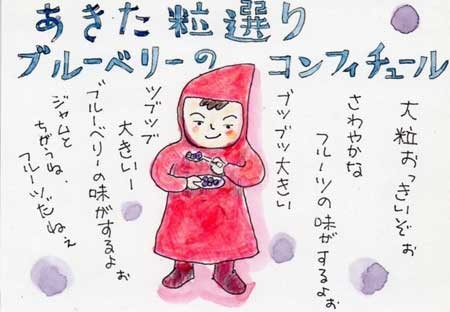 あきた粒選り
ブルーベリーの コンフィチュール
大粒おっきいぞぉ
さわやかな
フルーツの味がするよぉ
ブツブツ大きい
ツブツブ
大きいー
ブルーベリーの味がするよぉ
ジャムと
ちがうね、
フルーツだねぇ